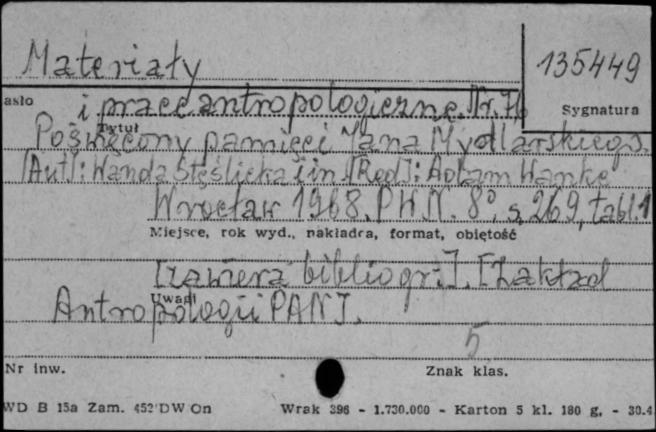 Materiały
135449
asło
i prace antropologiczne. Nr. 76
Sygnatura
Tytuł
Poświęcony pamięci Jana Mydlarskiego.
[Aut]: Wanda Stęślicka i in. [Red]: Adam Wanke
Wrocław 1968. P.W.N. 8° s. 269, tabl. 1
Miejsce, rok wyd., nakładca, format, objętość
[Zawiera bibliogr.]. [Zakład
Uwagi
Antropologii PAN].
5
Nr inw.
Znak klas.
WD B 15a Zam. 452 DW On
Wrak 396 - 1.730.000 - Karton 5 kl. 180 g. - 30.4